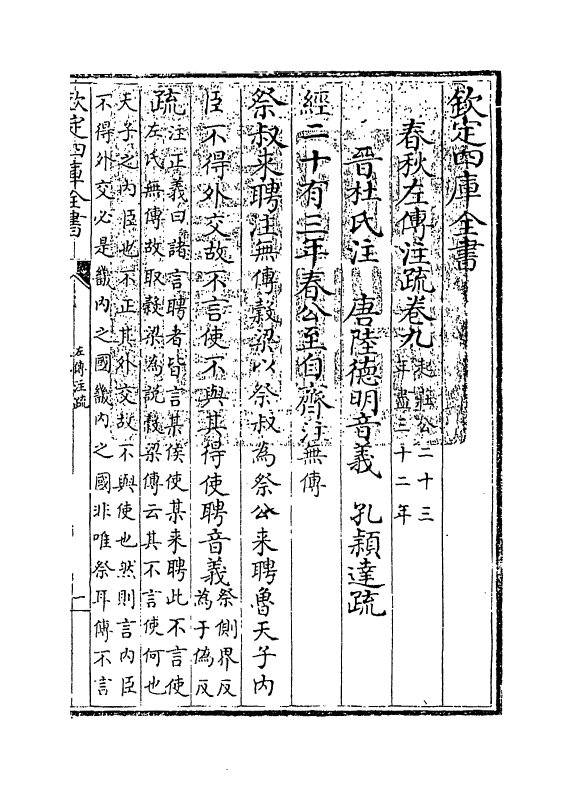 欽定四庫全書
春秋左傳注疏卷九 起莊公二十三
年盡三十二年
晉杜氏注 唐陸德明音義 孔穎達疏
經二十有三年春公至自齊注無傳
祭叔來聘注無傳穀梁以祭叔為祭公來聘魯天子內
臣不得外交故不言使不與其得使聘音義祭側界反
為于偽反
疏注正義曰諸言聘者皆言某侯使某來聘此不言使
左氏無傳故取穀梁為說穀梁傳云其不言使何也
天子之內臣也不正其外交故不與使也然則言內臣
不得外交必是畿內之國畿內之國非唯祭耳傳不言
欽定四庫全書
左傳注疏
一